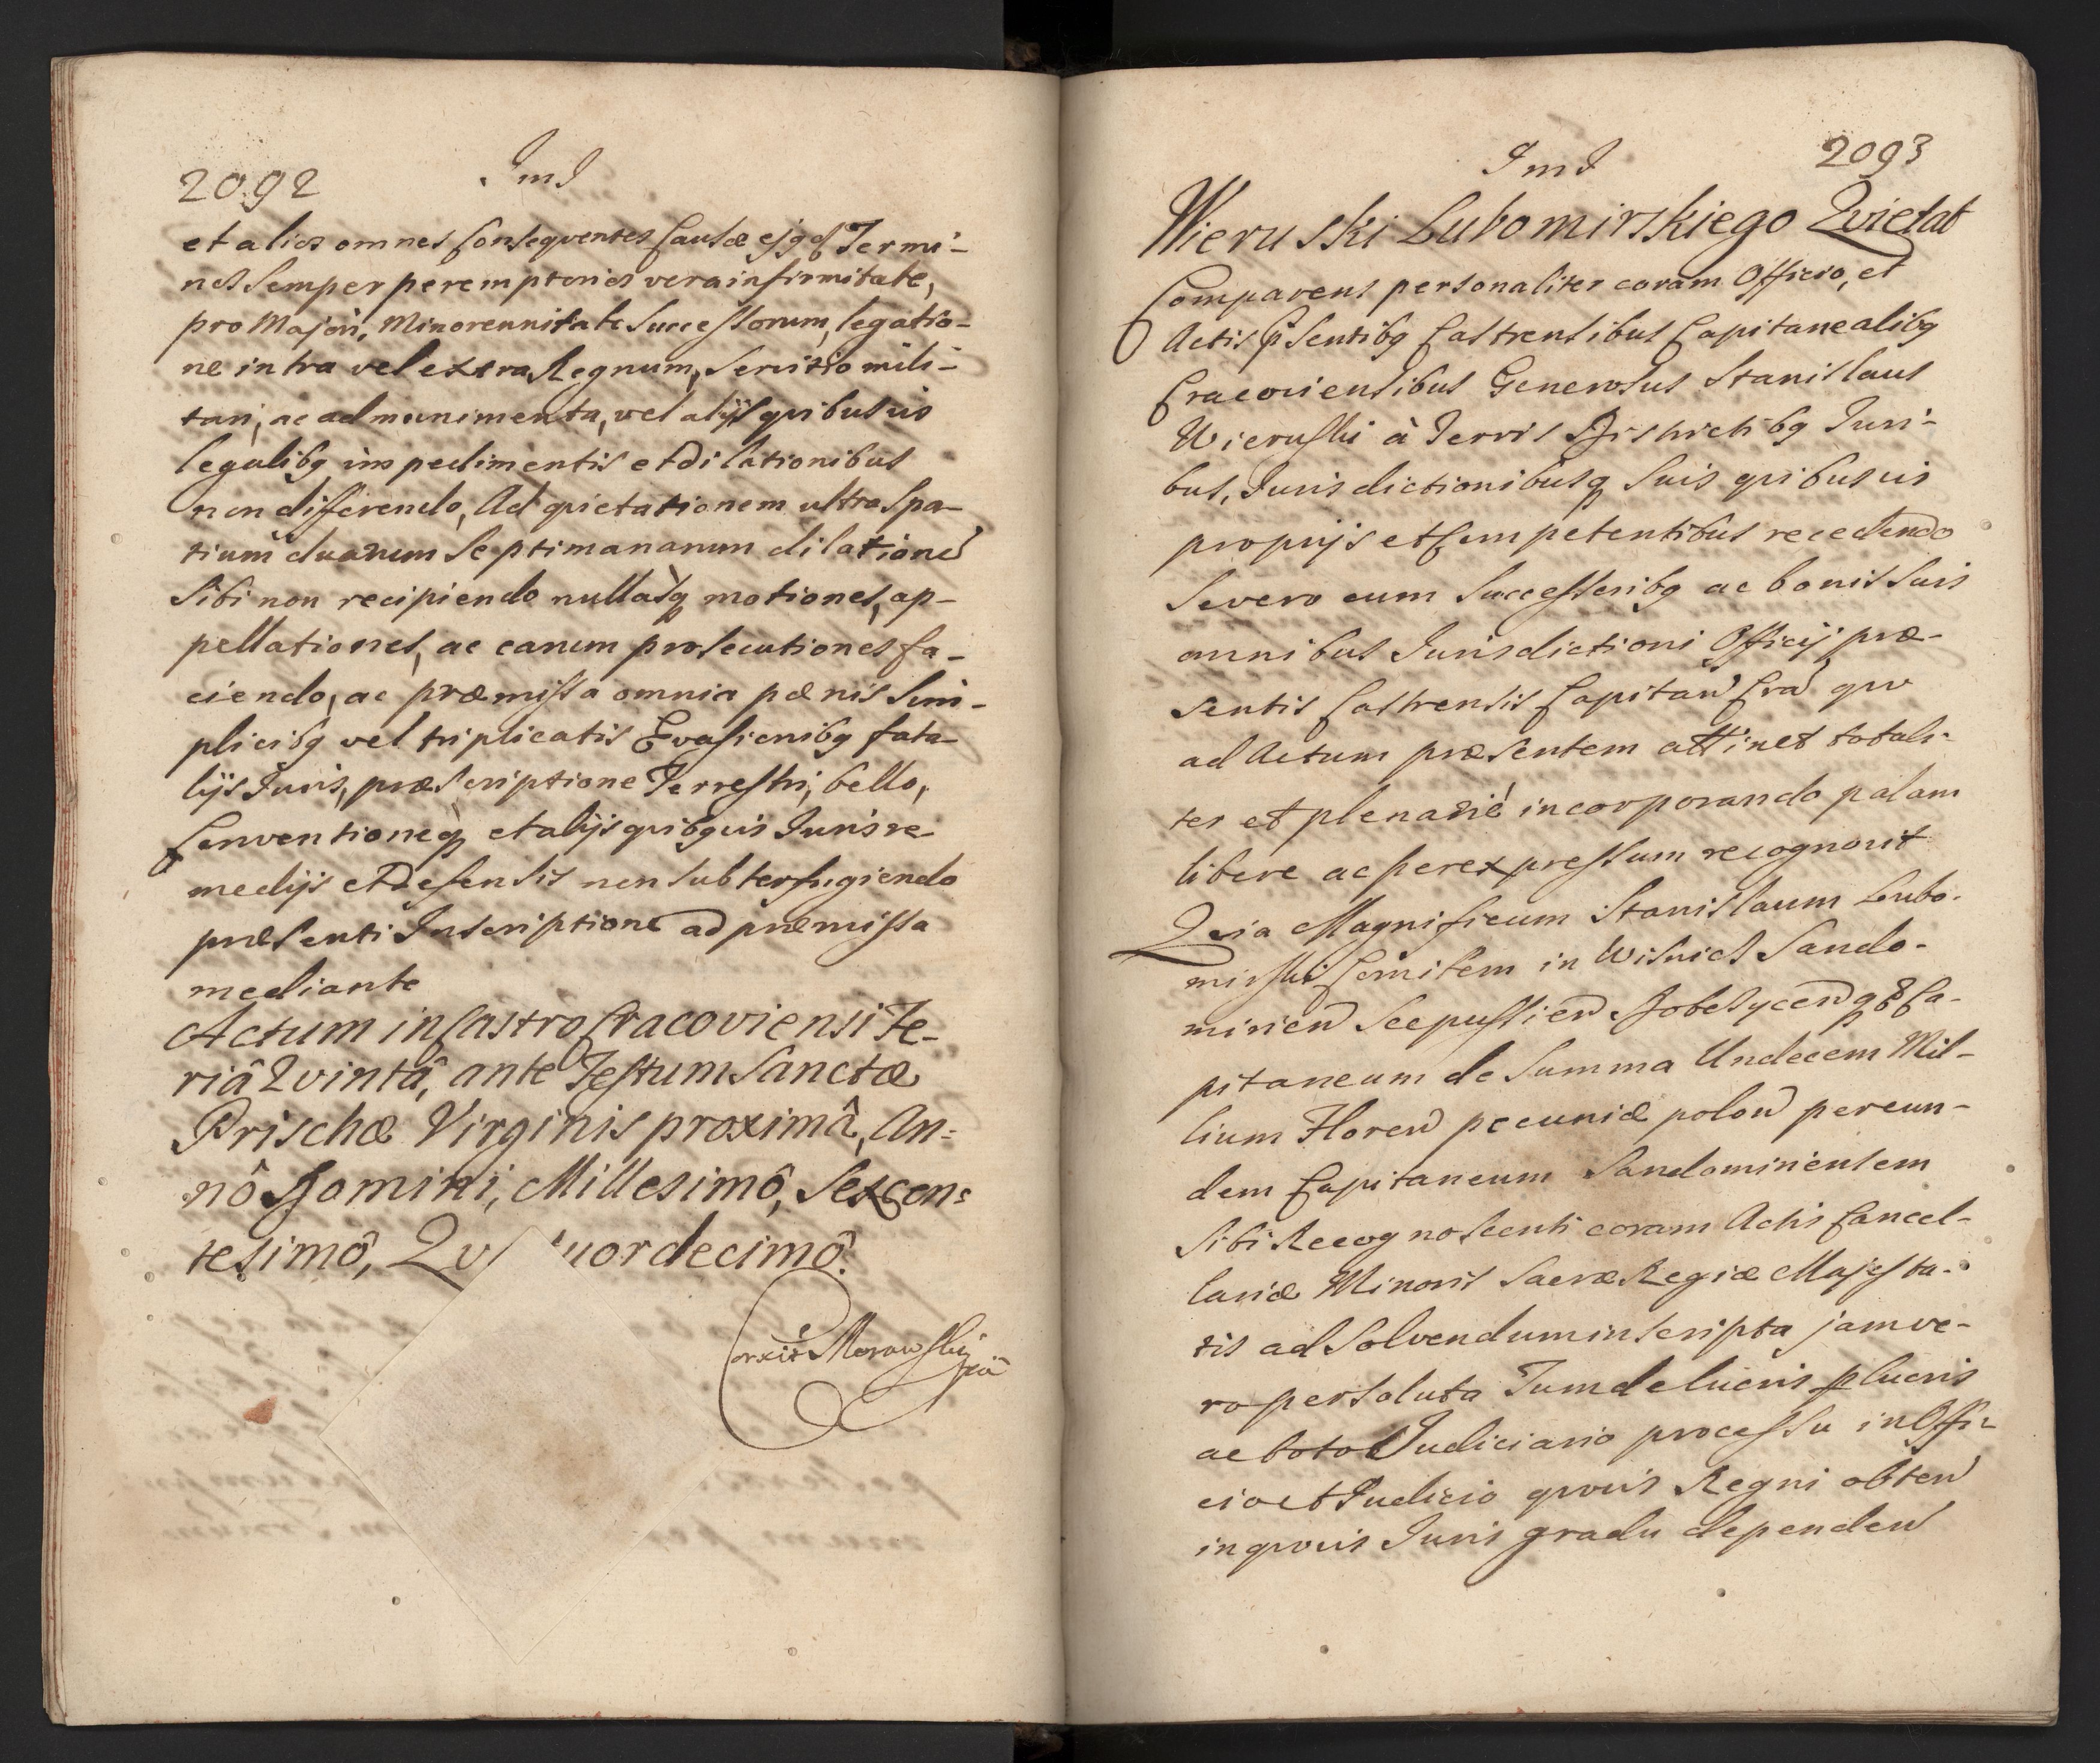 2092
ImI
et alios omnes Consequentes Causæ ejgq Termi-
nos Semper peremptorios vera infirmitate,
pro Majori, Minorennitate Successorum, legatio-
ne intra vel extra Regnum, Servitio mili-
tari, ac ad munimenta, vel alijs quibusuis
legalibq impedimentis et dilationibus
non differendo, Ad quietationem ultra Spa-
tium duarum Septimanarum dilatione
Sibi non recipiendo nullasq motiones, ap-
pellationes, ac earum prosecutiones fa-
ciendo, ac præmissa omnia pænis Sim-
plicibq vel triplicatis Evasionibq fata-
lijs Juris, præscriptione Terrestri, bello,
Conventioneq et alijs quibquis Juris re-
medijs et defensis non Subterfugiendo
præsenti Inscriptione ad præmissa
mediante
Actum in Castro Cracoviensi Fe-
riâ Qvintâ, ante Festum Sanctæ
Prischæ Virginis proximâ, An-
nô Domini, Millesimô, Sexcen-
tesimô, Qv uordecimô.
Correxit Morawskij
ImI
2093
Wieruski Lubomirskiego Qvietat
Comparens personaliter coram Officio, et
Actis p̄sentibq Castrensibus Capitanealibq
Cracoviensibus Generosus Stanislaus
Wieruski à Terris Districtibq Juri-
bus, Jurisdictionibusq Suis quibusuis
proprijs et Competentibus recedendo
Se vero cum Successoribq ac bonis Suis
omnibus Jurisdictioni Officij præ-
sentis Castrensis Capitan̄ Cra͞ quo
ad Actum præsentem attinet totali-
ter et plenariè incorporando palam
libere ac per expressum recognovit
Quia Magnificum Stanislaum Lubo-
mirski Comitem in Wisnicz Sando-
mirien̄ Scepusien̄ Dobczycen̄ qꝫ Ca-
pitaneum de Summa Undecem Mil-
lium Floren̄ pecuniæ polon̄ per eun-
dem Capitaneum Sandomiriensem
Sibi Recognoscenti coram Actis Cancel-
lariæ Minoris Sacræ Regiæ Majesta-
tis ad Solvendum inscripta jam ve-
ro persoluta Tum de lucris p lucris
ac toto Judiciario processu in Offi-
cio et Judicio quouis Regni obten̄
in quouis Juris gradu dependen̄